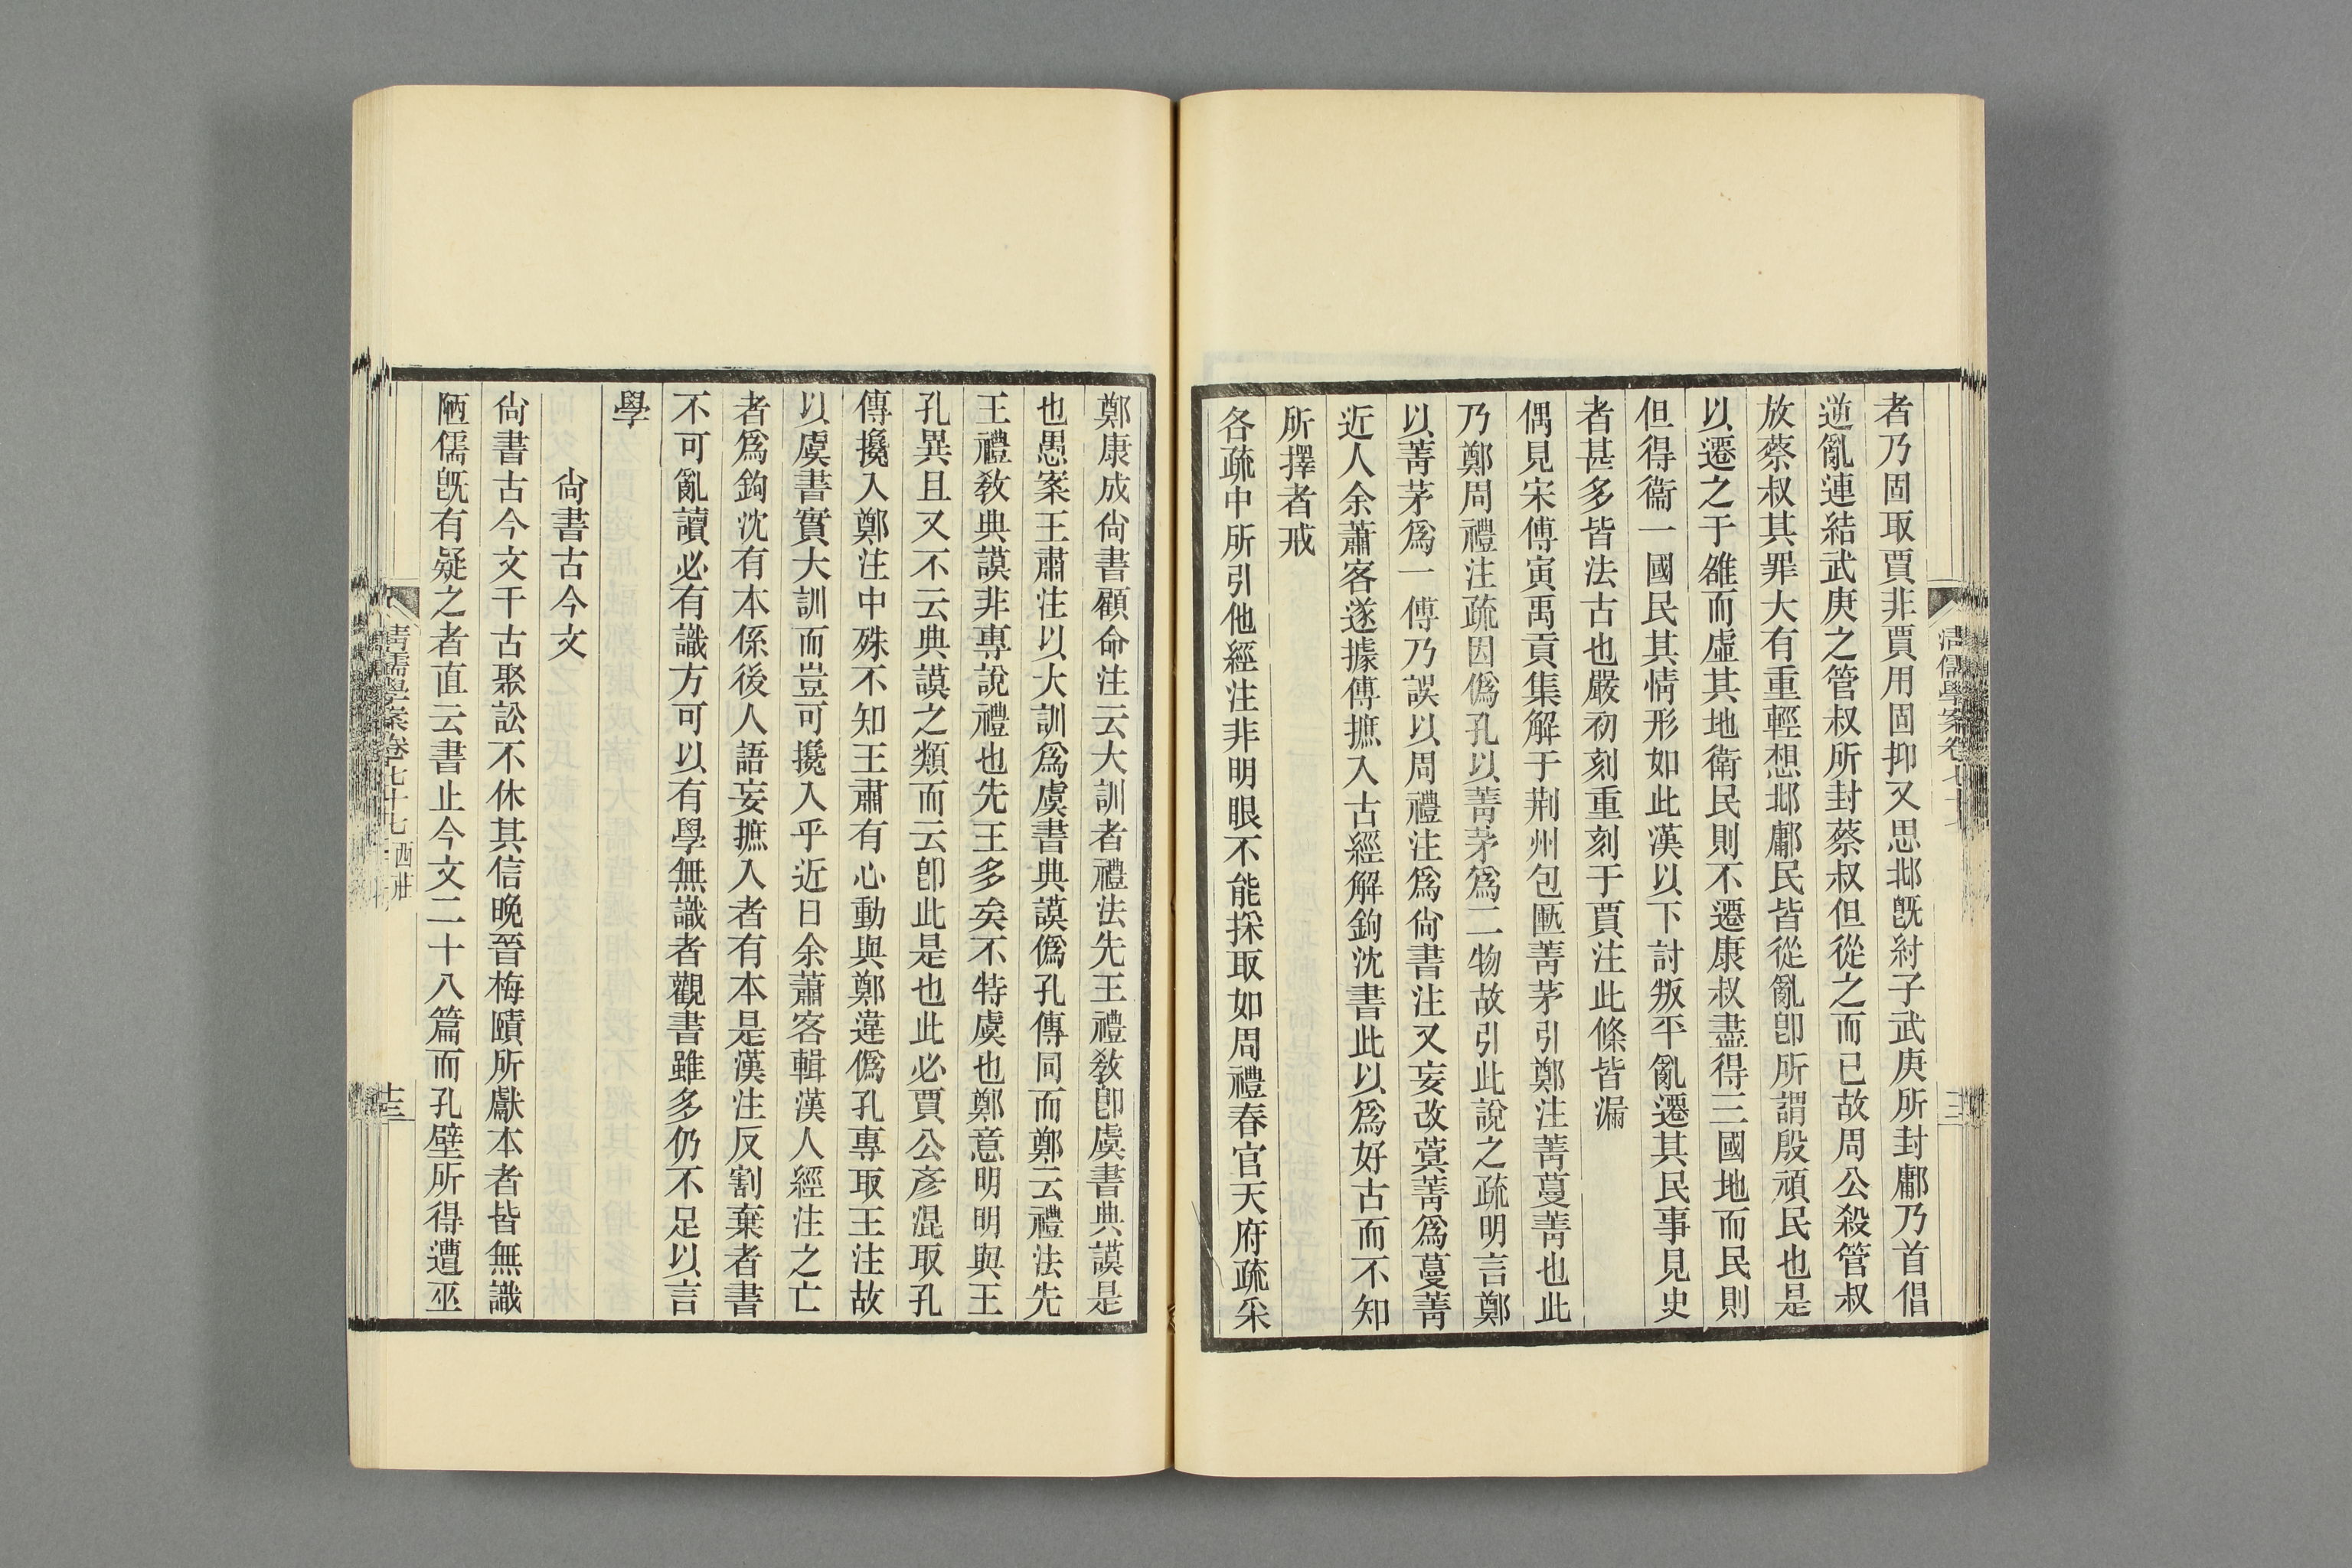 者乃固取賈非賈用固抑又思邶旣紂子武庚所封鄘乃首倡
逆亂連結武庚之管叔所封蔡叔但從之而已故周公殺管叔
放蔡叔其罪大有重輕想邶鄘民皆從亂卽所謂殷頑民也是
以遷之于雒而虛其地衛民則不遷康叔盡得三國地而民則
但得衞一國民其情形如此漢以下討叛平亂遷其民事見史
者甚多皆法古也嚴初刻重刻于賈注此條皆漏
偶見宋傅寅禹貢集解于荆州包匭菁茅引鄭注菁蔓菁也此
乃鄭周禮注疏因僞孔以菁茅爲二物故引此說之疏明言鄭
以菁茅爲一傅乃誤以周禮注爲尙書注又妄改蓂菁爲蔓菁
近人余蕭客遂據傅摭入古經解鉤沈書此以爲好古而不知
所擇者戒
各疏中所引他經注非明眼不能採取如周禮春官天府疏采
清儒學案卷七十七
鄭康成尙書顧命注云大訓者禮法先王禮敎卽虞書典謨是
也愚案王肅注以大訓爲虞書典謨僞孔傳同而鄭云禮法先
王禮敎典謨非專說禮也先王多矣不特虞也鄭意明明與王
孔異且又不云典謨之類而云卽此是也此必賈公彥混取孔
傳攙入鄭注中殊不知王肅有心動與鄭違僞孔專取王注故
以虞書實大訓而豈可攙入乎近日余蕭客輯漢人經注之亡
者爲鉤沈有本係後人語妄摭入者有本是漢注反割棄者書
不可亂讀必有識方可以有學無識者觀書雖多仍不足以言
學
尙書古今文
尙書古今文千古聚訟不休其信晚晉梅賾所獻本者皆無識
陋儒旣有疑之者直云書止今文二十八篇而孔壁所得遭巫
清儒學案卷七十七 西莊
十三